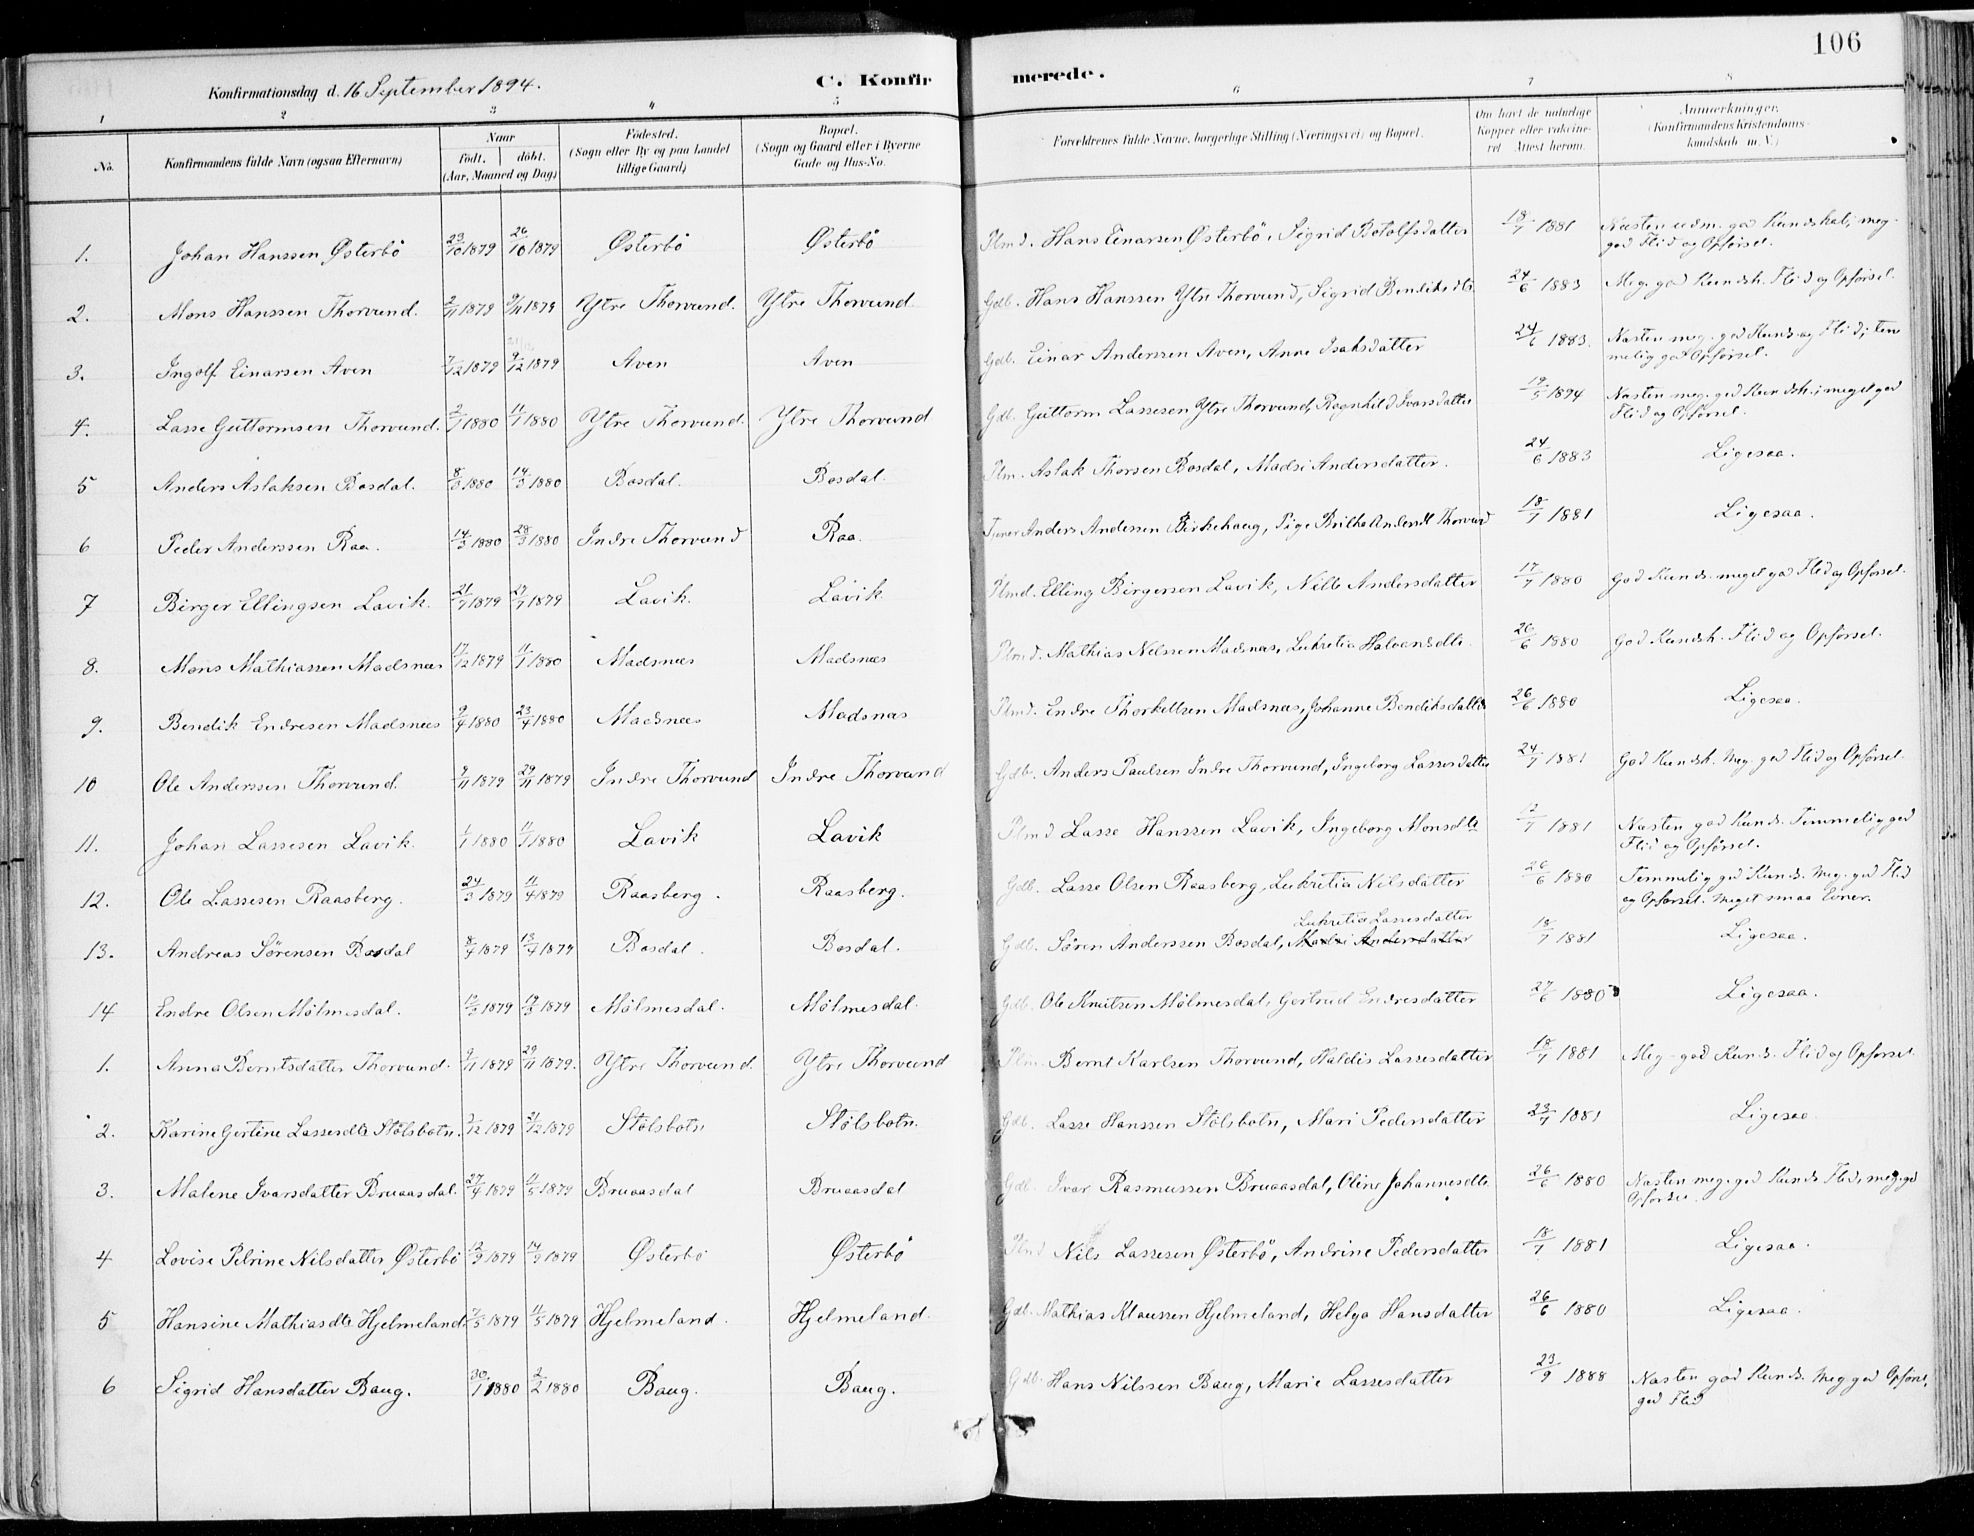 106
Konfirmationsdag d. 16 September 1894.
C. Konfirmerede.
1 2 3 4 5 6 7 8
No. Konfirmandens fulde Navn (ogsaa Efternavn) Naar født. døbt. (Aar, Maaned og Dag) Fødested. (Sogn eller By og paa Landet tillige Gaard) Bopæl. (Sogn og Gaard eller i Byerne Gade og Hus-No. Forældrenes fulde Navne, borgerlige Stilling (Næringsvei) og Bopæl. Om havt de naturlige Kopper eller vaccineret. Attest herom. Anmærkninger. (Konfirmandens Kristendomskundskab m. V.)
1. Johan Hanssen Østerbö 23/10 1879 26/10 1879 Østerbö Østerbö Plmd. Hans Einarsen Østerbö, Sigrid Botolfsdatter 18/7 1881 Næsten udm. god Kundskab, meg. god Flid og Opförsel.
2. Mons Hanssen Thorvund. 2/11 1879 9/11 1879 Ytre Thorvund. Ytre Thorvund. Gdb. Hans Hanssen Ytre Thorvund, Sigrid Bendiksdtr. 24/6 1883 Meg. god Kundsk. Flid og Opförsel.
3. Ingolf Einarsen Aven 7/12 1879 9/12 1879 Aven Aven Gdb. Einar Anderssen Aven, Anne Isaksdatter 24/6 1883. Næsten meg. god Kunds. og Flid; temmelig god Opförsel.
4. Lasse Guttormsen Thorvund. 2/1 1880 11/1 1880 Ytre Thorvund. Ytre Thorvund Gdb. Guttorm Lassesen Ytre Thorvund, Ragnhild Ivarsdatter 19/5 1894 Næsten meg. god Kundsk.; meget god Flid og Opförsel.
5 Anders Aslaksen Bosdal. 8/3 1880 14/3 1880 Bosdal. Bosdal. Plm. Aslak Thorsen Bosdal, Madsi Andersdatter. 24/6 1883 Ligesaa.
6 Peder Anderssen Raa. 14/3 1880 28/3 1880 Indre Thorvund Raa. Tjener Anders Anderssen Birkehaug, Pige Brithe Andersdt Thorvund 18/7 1881 Ligesaa.
7 Birger Ellingsen Lavik. 21/7 1879 27/7 1879 Lavik. Lavik Plmd. Elling Birgersen Lavik, Nille Andersdatter 17/7 1880 God Kunds. meget god Flid og Opförsel.
8. Mons Mathiassen Madsnæs 17/12 1879 11/1 1880 Madsnæs Madsnæs Plmd. Mathias Nilssen Madsnæs, Lukretia Halvorsdtr. 26/6 1880 God Kundsk. Flid og Opförsel.
9. Bendik Endresen Madsnæs 9/4 1880 23/4 1880 Madsnæs Madsnæs Plmd. Endre Thorkelsen Madsnæs, Johanne Bendiksdatter 26/6 1880 Ligesaa.
10 Ole Anderssen Thorvund. 9/11 1879 29/11 1879 Indre Thorvund Indre Thorvund Gdb. Anders Paulsen Indre Thorvund, Ingeborg Lassesdatter 24/7 1881 God Kundsk. Meg. god Flid og Opförsel.
11. Johan Lassesen Lavik. 1/1 1880 11/1 1880 Lavik Lavik Plmd Lasse Hanssen Lavik, Ingeborg Monsdtr 12/7 1881 Næsten god Kunds. Temmelig god Flid og Opförsel.
12. Ole Lassesen Raasberg. 24/3 1879 11/4 1879 Raasberg. Raasberg. Gdb. Lasse Olsen Raasberg, Lukretia Nilsdatter 26/6 1880 Temmelig god Kunds. Meg. god Flid og Opförsel. Meget smaa Evner.
13. Andreas Sörensen Bosdal 8/4 1879 13/4 1879 Bosdal. Bosdal. Gdb. Sören Anderssen Bosdal, Madsi Andersdatter Lukretia Lassesdatter 18/7 1881 Ligesaa.
14 Endre Olsen Mölmesdal. 12/3 1879 19/3 1879 Mölmesdal. Mölmesdal. Gdb. Ole Knutsen Mölmesdal, Gertrud Endresdatter 27/6 1880 Ligesaa.
1. Anna Berntsdatter Thorvund. 9/11 1879 29/11 1879. Ytre Thorvund. Ytre Thorvund Plm. Bernt Karlsen Thorvund, Haldis Lassesdatter 18/7 1881 Meg. god Kunds. Flid og Opförsel.
2. Karine Gertine Lassesdtr Stölsbotn. 3/12 1879 21/12 1879 Stölsbotn Stölsbotn. Gdb. Lasse Hanssen Stölsbotn, Mari Pedersdatter 23/7 1881 Ligesaa
3. Malene Ivarsdatter Bruaasdal. 27/4 1879 11/5 1879 Bruaasdal Bruaasdal Gdb. Ivar Rasmussen Bruaasdal, Oline Johannesdtr. 26/6 1880 Næsten meg. god Kunds Flid, meg. gd Opförsel.
4 Lovise Petrine Nilsdatter Østerbö 12/9 1879 14/9 1879 Østerbö Østerbö Plmd Nils Lassesen Østerbö, Andrine Pedersdatter 18/7 1881 Ligesaa.
5 Hansine Mathiasdtr Hjelmeland. 7/5 1879 11/5 1879 Hjelmeland. Hjelmeland. Gdb. Mathias Klaussen Hjelmeland, Helga Hansdatter 26/6 1880 Ligesaa.
6 Sigrid Hansdatter Baug. 30/1 1880 2/2 1880 Baug. Baug. Gdb. Hans Nilssen Baug, Marie Lassesdatter 23/9 1888 Næsten god Kunds. Meg god Opförsel, god Flid